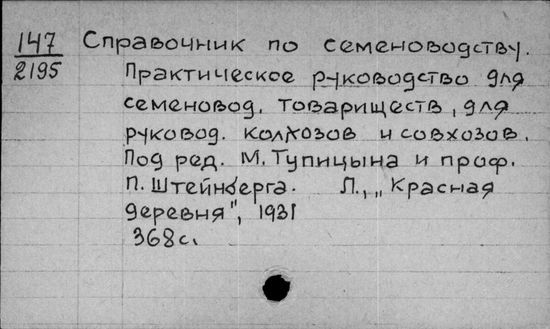 147 Справочник по семеноводству.
2195 Практическое руководство для
семеновод. товариществ, для
руковод. колхозов и совхозов.
Под ред. М. Тупицына и проф.
П. Штейнберга. Л., „Красная
деревня", 1931
368 с.